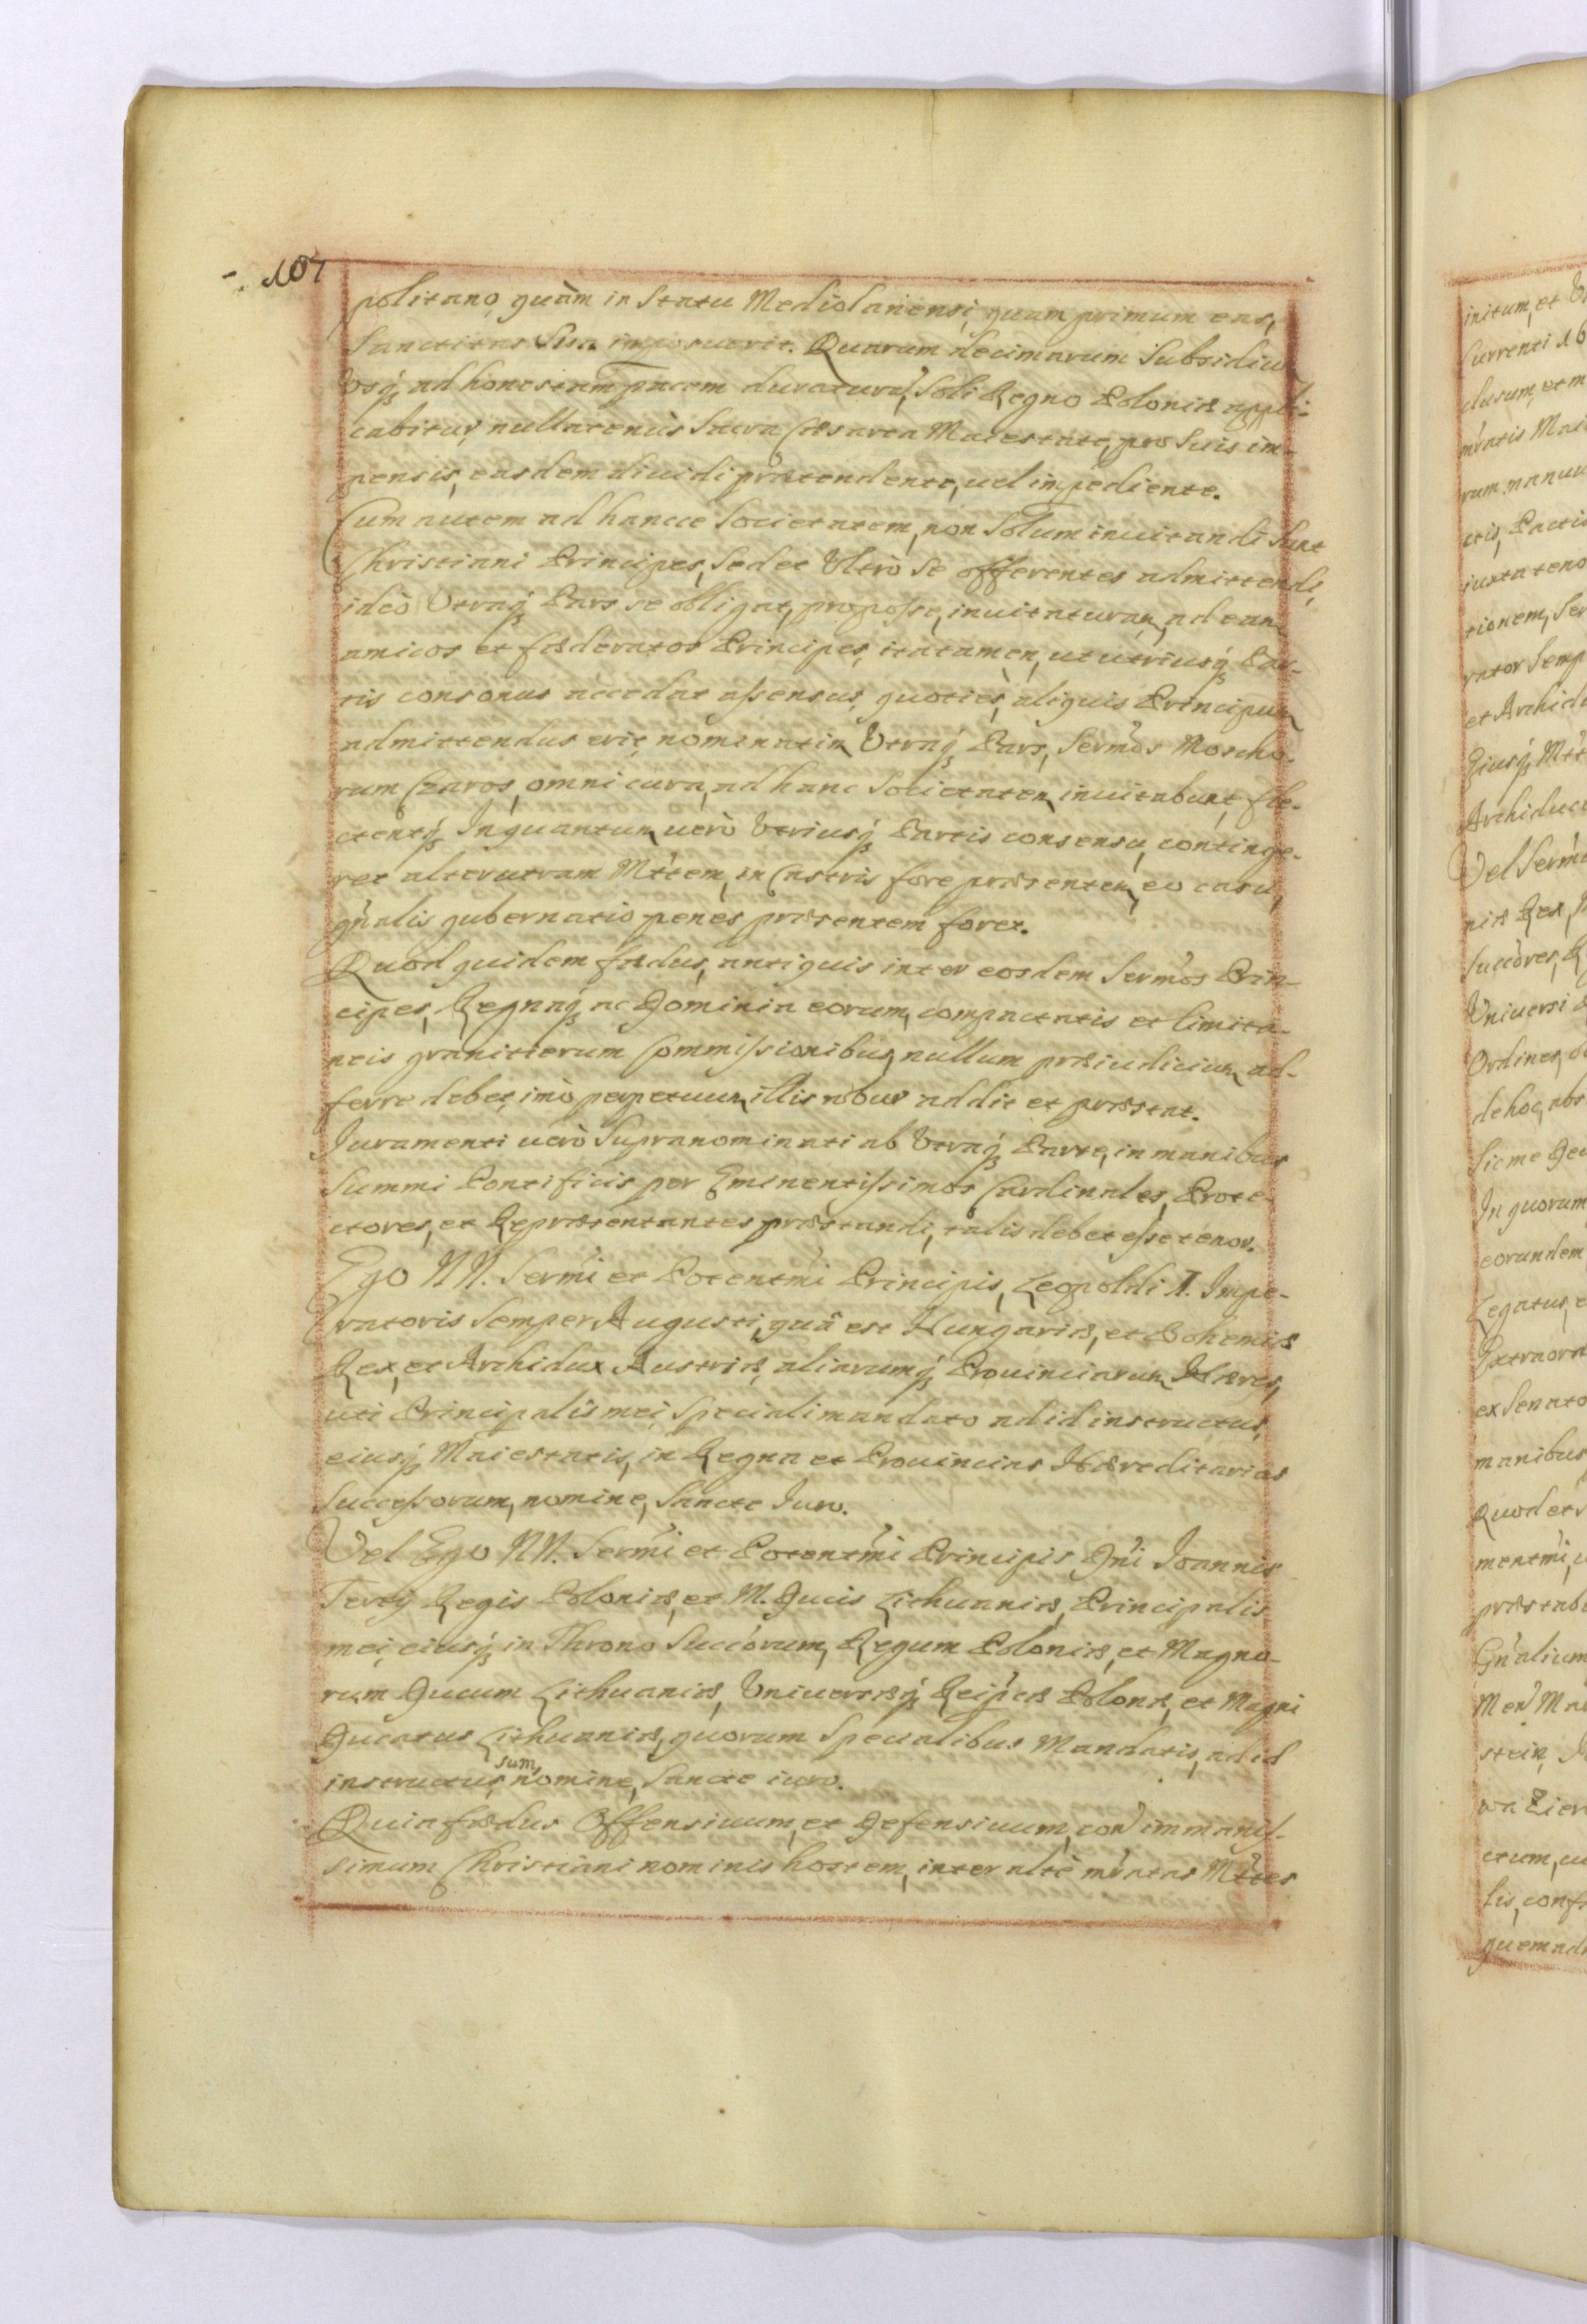 107
politano, quàm in Statu Mediolanensi, quam primum eas,
Sanctitas Sua imposuerit. Quarum decimarum Subsidiũ
Vsq; ad honestam pacem duraturũ, Soli Regno Poloniæ appli-
cabitur, nullatenùs Sacra Cæsarea Maiestate, pro Suis im-
pensis, easdem diuidi prætendente, uel impediente.
Cum autem ad hancce Societatem, non Solum inuitandi Sunt
Christiani Principes, Sed et Vltrò Se offerentes admittendi,
ideò Vtraq; Pars se obligat, pro posse, inuitaturam, ad eam
amicos et fæderatos Principes, ita tamen, ut utriusq; Par-
tis consonus accedat assensus, quoties, aliquis Principum
admittendus erit, nominatim Vtraq; Pars, Sermos Moscho-
rum Czaros, omni cura, ad hanc Societatem inuitabunt, fle-
ctentq; Inquantum uerò Vtriusq; Partis consensu, continge-
ret alterutram Mttem, in Castris fore præsentem, eo casu,
gñalis gubernatio penes præsentem foret.
Quod quidem fædus, antiquis inter eosdem Sermos Prin-
cipes, Regnaq; ac Dominia eorum, compactatis et limita-
neis granitierum Commissionibus, nullum præiudicium ad-
ferre debet, imò perpetuum illis robur addit et præstat.
Iuramenti uerò Supranominati ab Vtraq; Parte, in manibus
Summi Pontificis per Eminentissimos Cardinales, Prote-
ctores, et Repræsentantes præstandi, talis debet esse tenor.
Ego NN. Sermi et Potentmi Principis, Leopoldi I. Impe-
ratoris Semper Augusti, quâ est Hungariæ, et Bohemiæ
Rex, et Archidux Austriæ, aliarumq; Prouinciarum Hæres,
uti Principalis mei, Speciali mandato ad id instructus,
eiusq; Maiestatis, in Regna et Prouincias Hæreditarias
Successorum, nomine, Sancte Iuro.
Vel Ego NN. Sermi et Potentmi Principis Dñi Ioannis
Tertij Regis Poloniæ, et M. Ducis Lithuaniæ, Principalis
mei, eiusq; in Throno Succorum, Regum Poloniæ, et Magno-
rum Ducum Lithuaniæ, Vniuersæq; Reipcæ Polonæ, et Magni
Ducatus Lithuaniæ, quorum Specialibus Mandatis, ad id
sum,
instructus, nomine, Sancte iuro.
Quia fædus Offensiuum, et Defensiuum, con immanis-
simum Christiani nominis hostem, inter altè mratas Mttes